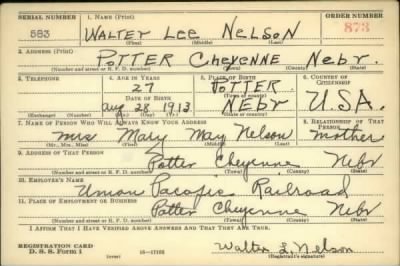 SERIAL NUMBER 1. NAME (Print) ORDER NUMBER
583 WALTER LEE NELSON 873
(First) (Middle) (Last)
2. ADDRESS (Print)
POTTER Cheyenne Nebr.
(Number and street or R. F. D. number) (Town) (County) (State)
3. TELEPHONE 4. AGE IN YEARS 5. PLACE OF BIRTH 6. COUNTRY OF CITIZENSHIP
27 POTTER
DATE OF BIRTH (Town or county)
Aug 28 1913 NEBr U.S.A.
(Exchange) (Number) (Mo.) (Day) (Yr.) (State or country)
7. NAME OF PERSON WHO WILL ALWAYS KNOW YOUR ADDRESS 8. RELATIONSHIP OF THAT PERSON
Mrs Mary May Nelson mother
(Mr., Mrs., Miss) (First) (Middle) (Last)
9. ADDRESS OF THAT PERSON
Potter Cheyenne Nebr
(Number and street or R. F. D. number) (Town) (County) (State)
10. EMPLOYER'S NAME
Union Pacific Railroad
11. PLACE OF EMPLOYMENT OR BUSINESS
Potter Cheyenne Nebr
(Number and street or R. F. D. number) (Town) (County) (State)
I AFFIRM THAT I HAVE VERIFIED ABOVE ANSWERS AND THAT THEY ARE TRUE.
REGISTRATION CARD
D. S. S. Form 1 (over) Walter L. Nelson
(Registrant's signature)